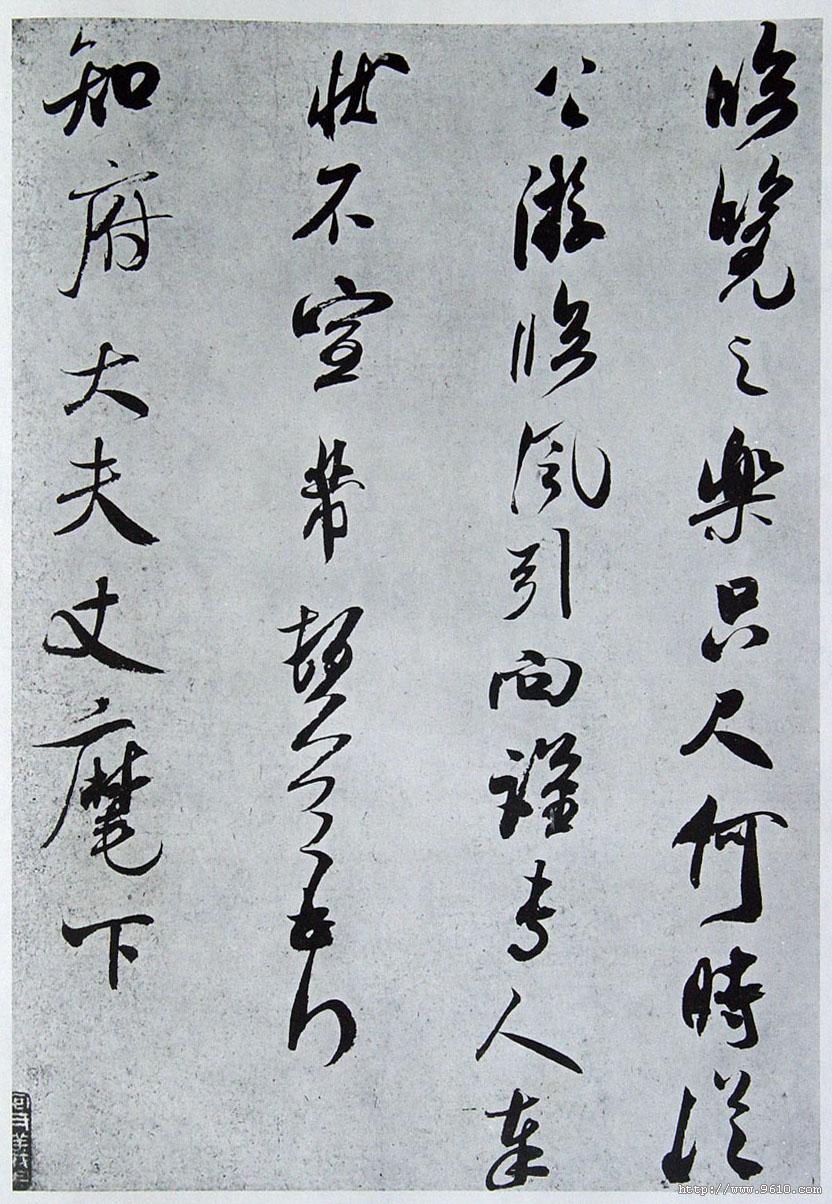 臨覽之樂只尺何時從
公游臨風引向謹專人奉
狀不宣芾頓首再拜
知府大夫丈麾下
http://www.9610.com